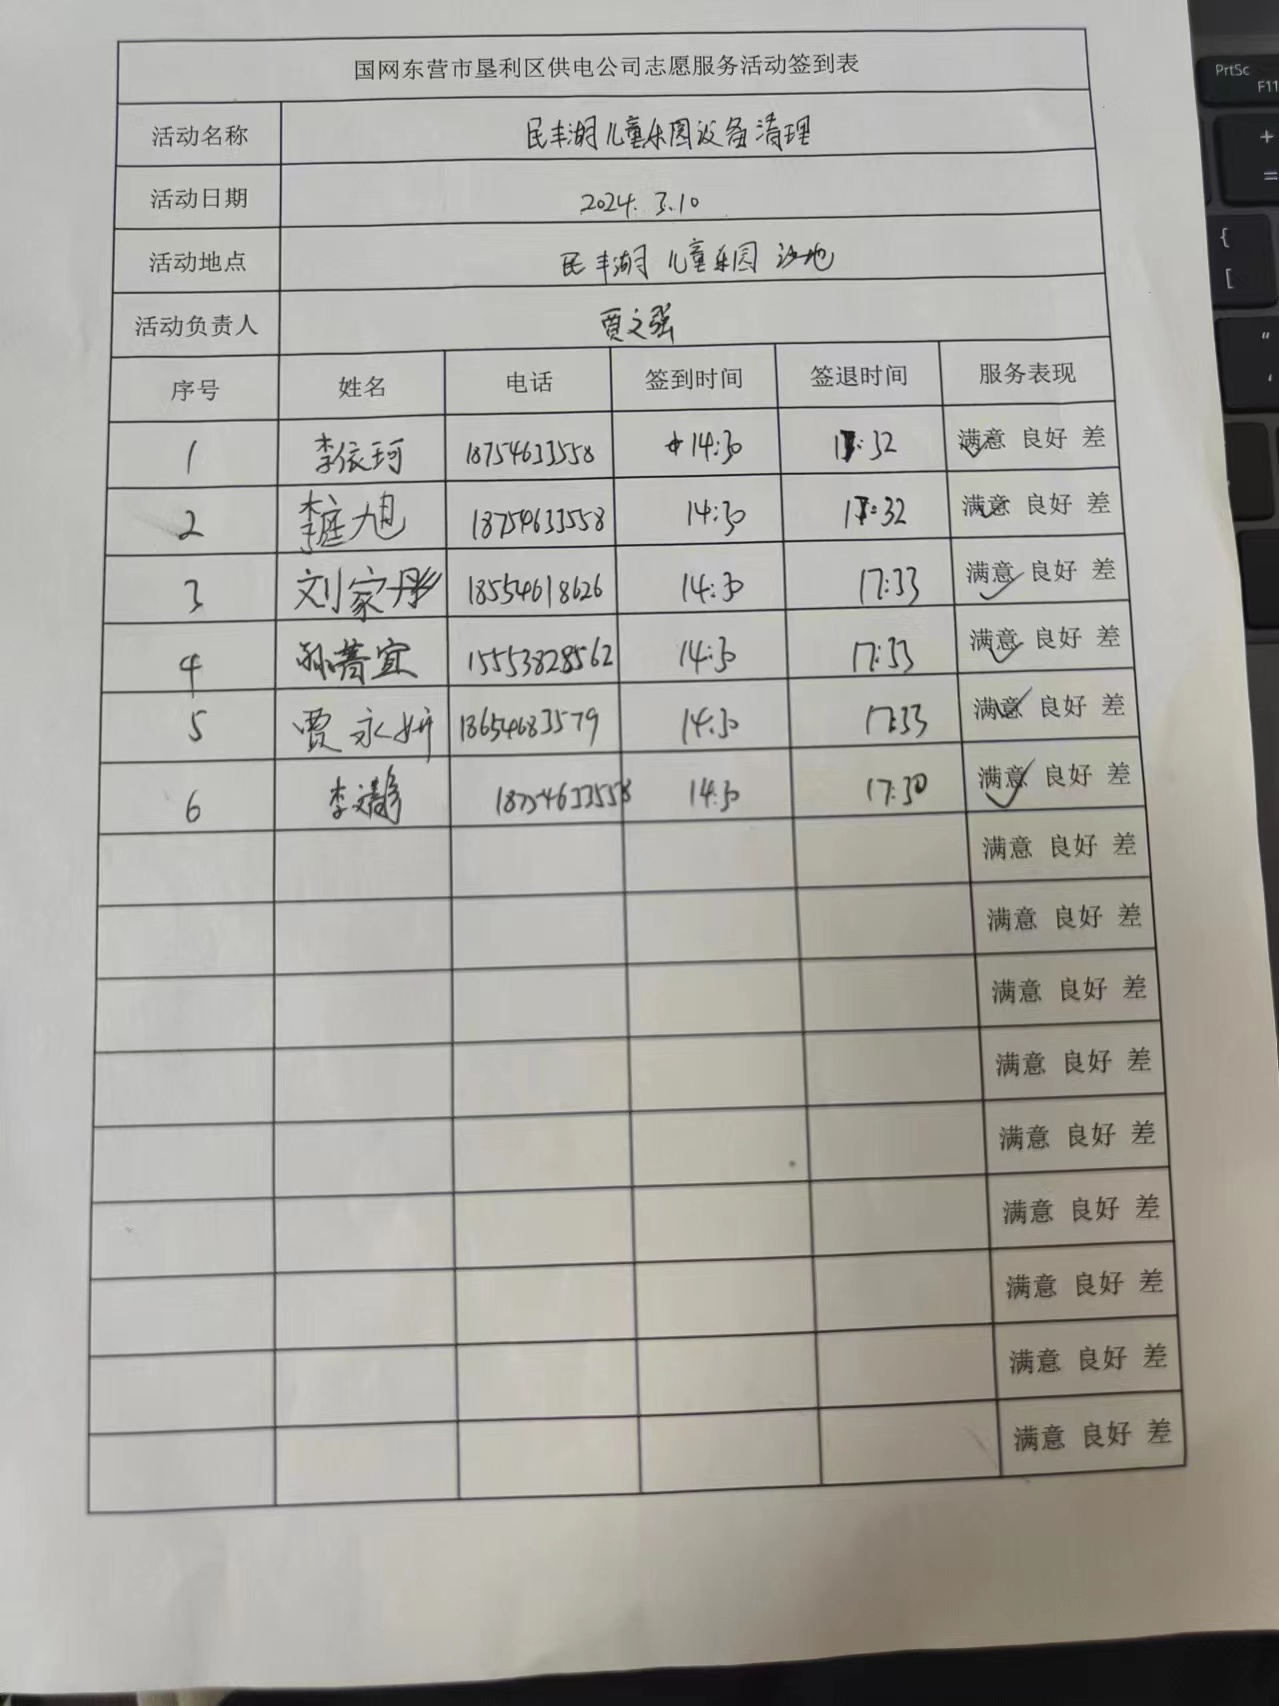 国网东营市垦利区供电公司志愿服务活动签到表
活动名称 民丰湖儿童乐园设备清理
活动日期 2024.3.10
活动地点 民丰湖儿童乐园沙地
活动负责人 贾文强
序号 姓名 电话 签到时间 签退时间 服务表现
1 李依珂 18754633558 14:30 17:32 满意 良好 差
2 李庭旭 18754633558 14:30 17:32 满意 良好 差
3 刘家彤 18554618626 14:30 17:33 满意 良好 差
4 孙菁宜 15553828562 14:30 17:33 满意 良好 差
5 贾永妍 18654683579 14:30 17:33 满意 良好 差
6 李 18754633558 14:30 17:30 满意 良好 差
满意 良好 差
满意 良好 差
满意 良好 差
满意 良好 差
满意 良好 差
满意 良好 差
满意 良好 差
满意 良好 差
满意 良好 差
PrtSc
F11
+
=
{
[
"